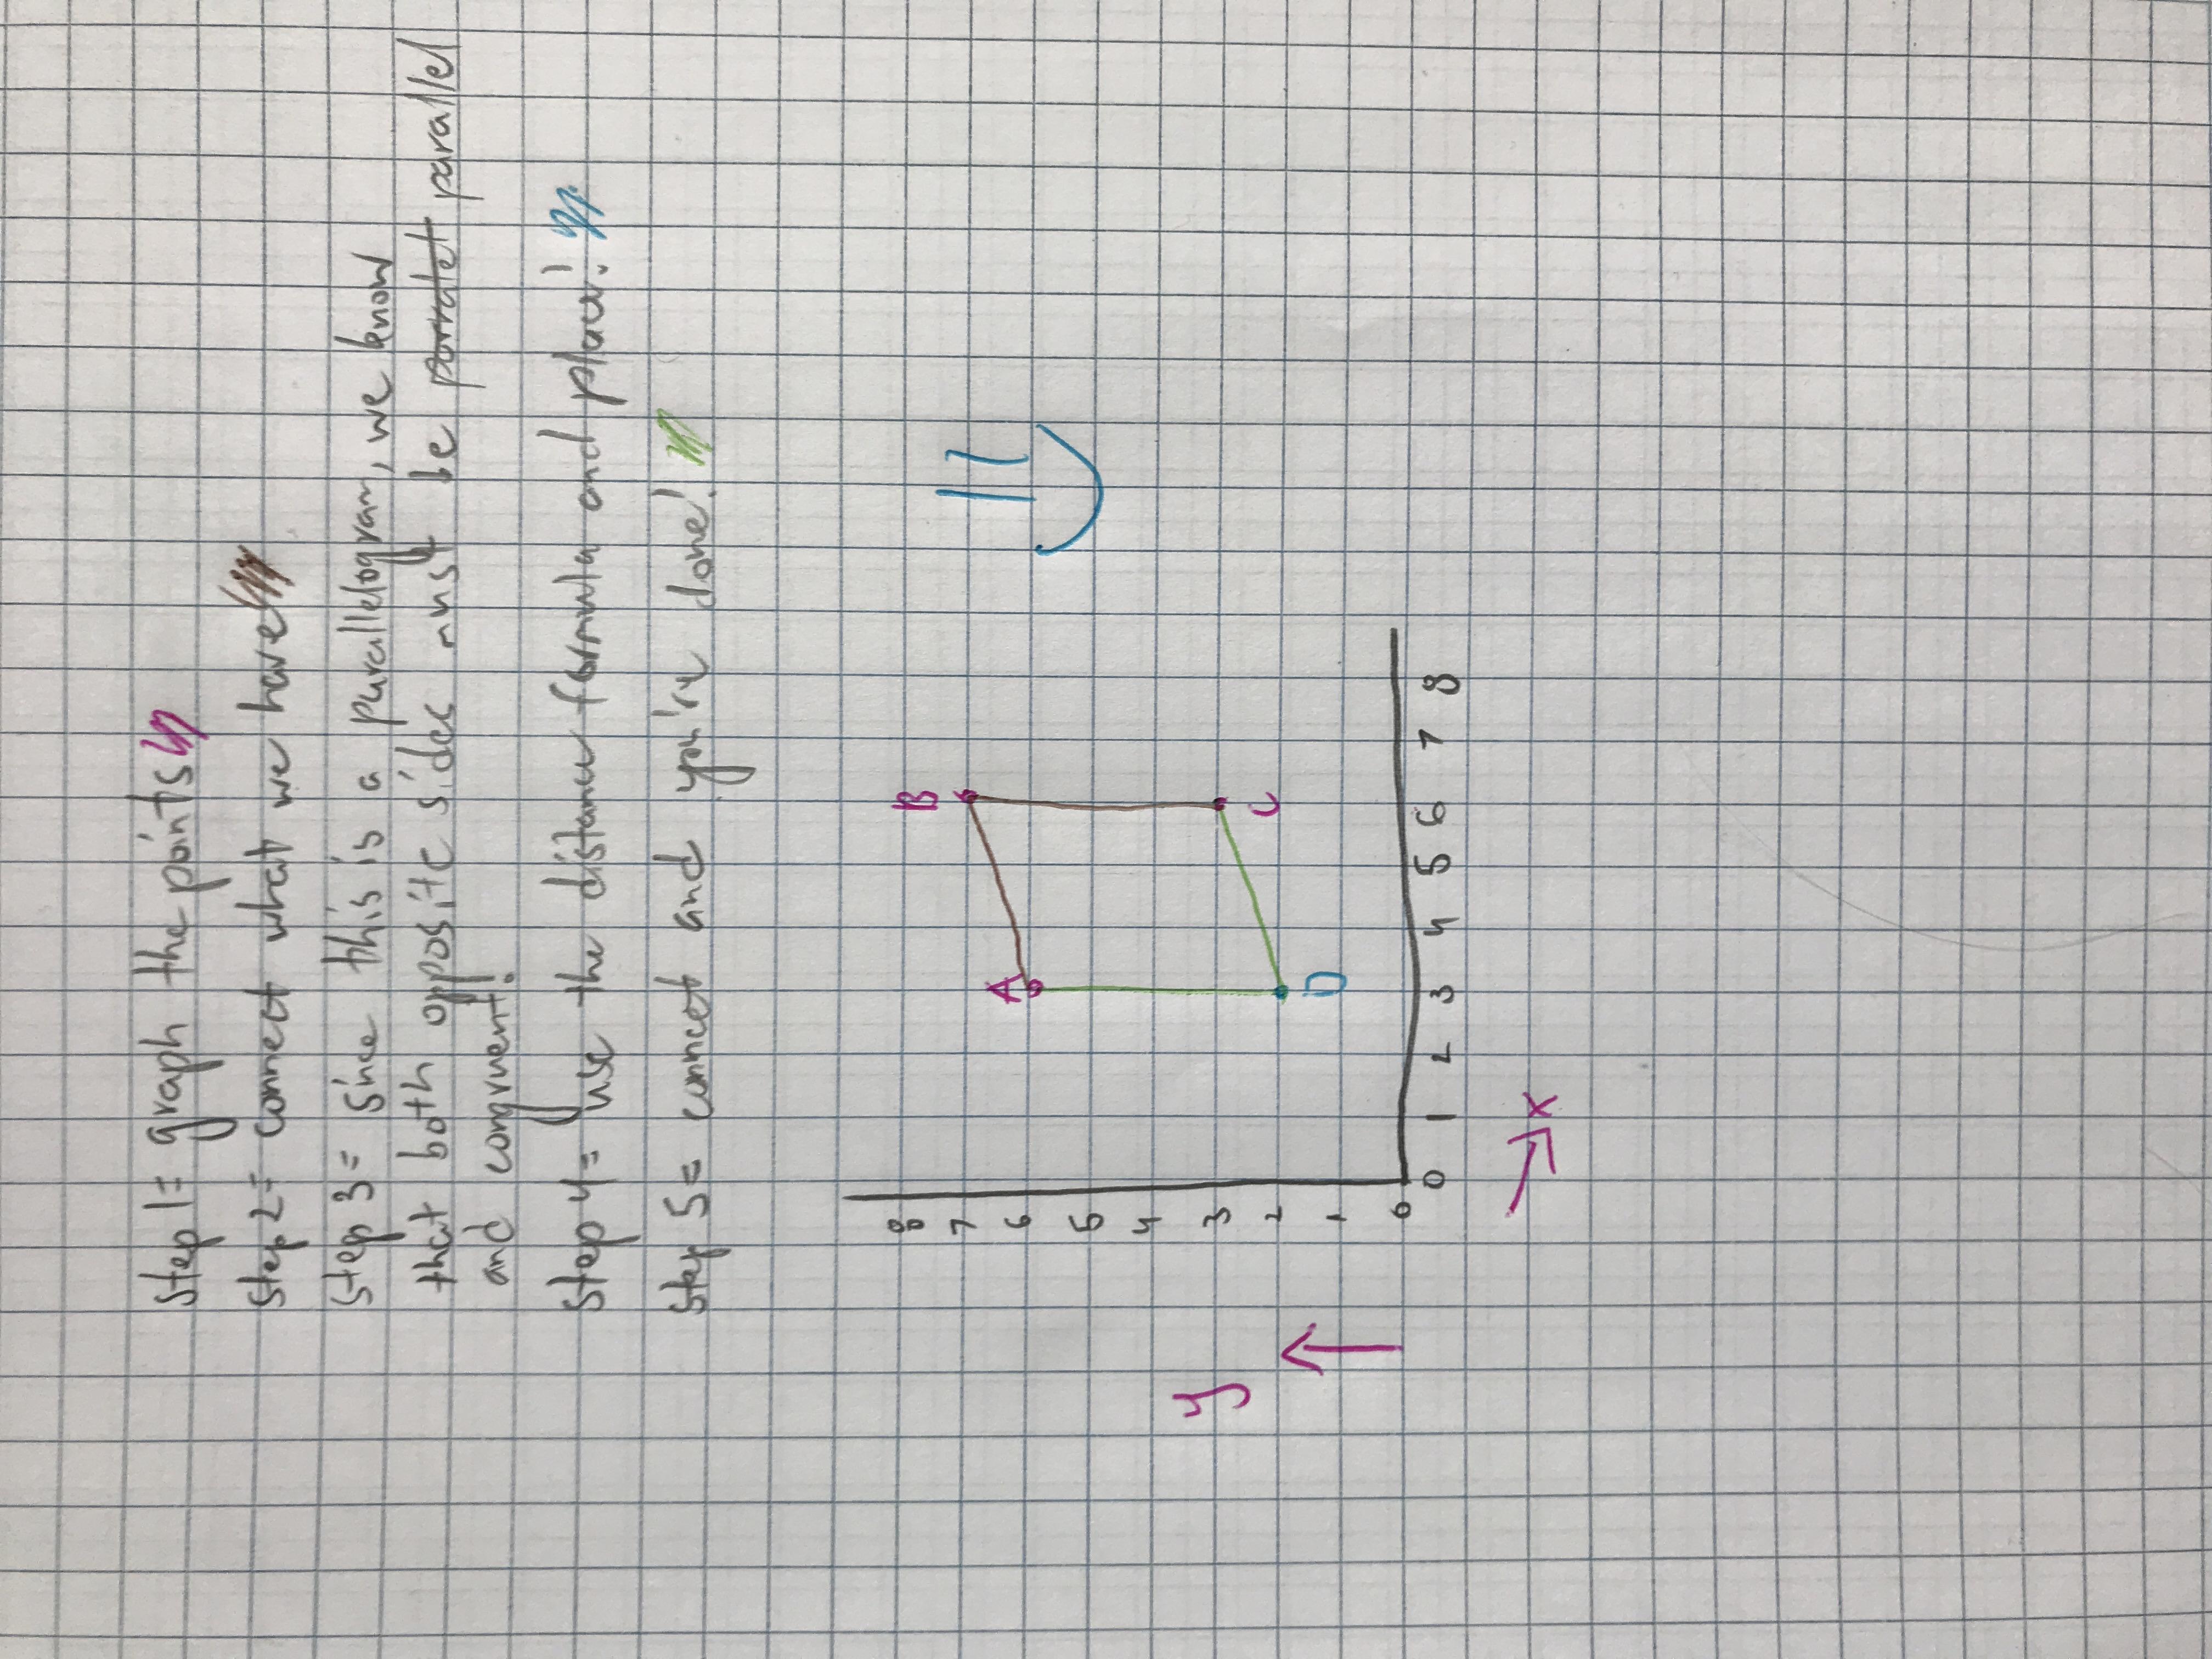 Step 1= graph the points
Step 2= connect what we have
Step 3= since this is a parallelogram, we know
that both opposite sides must be parralel parallel
and congruent!
Step 4= use the distance formula and place!
Step 5= connect and you're done!
8
7
6
5
4
3
2
1
0
B
A
C
D
0 1 2 3 4 5 6 7 8
y
x